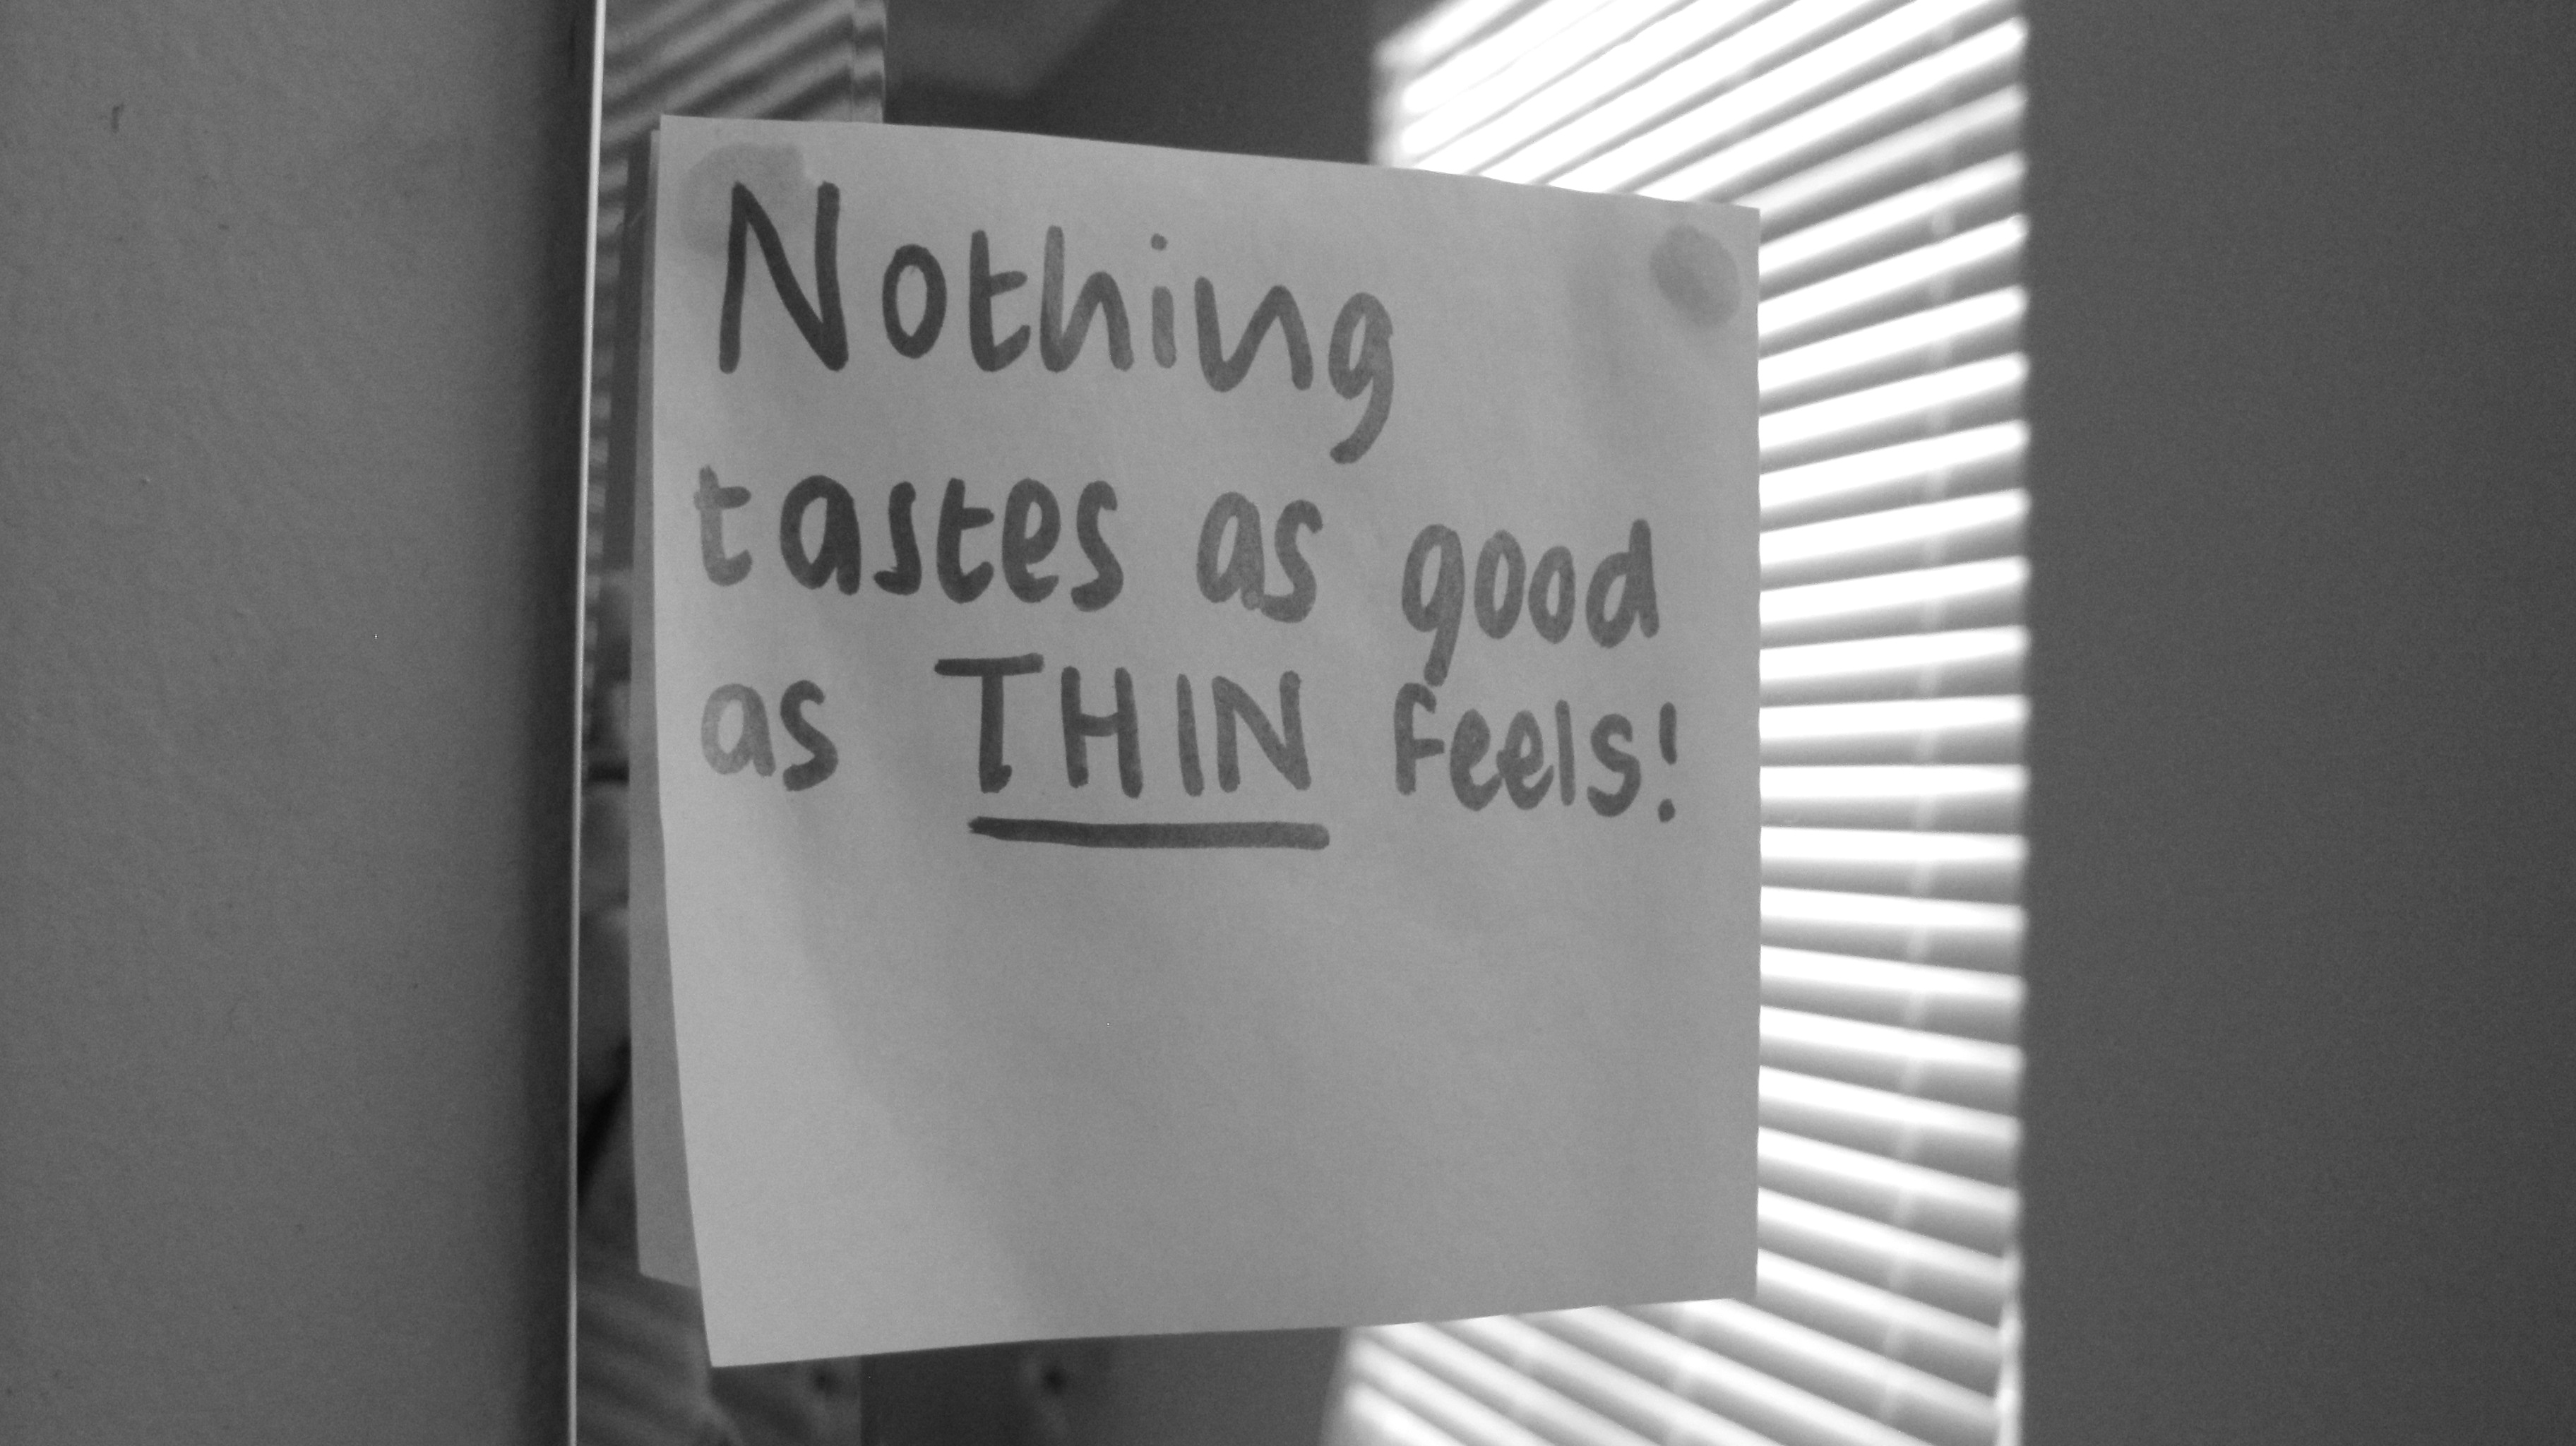 Nothing
tastes as good
as THIN feels!